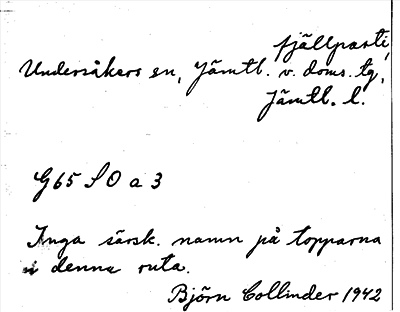 fjällparti,
Undersåkers sn, Jämtl. v. doms. tg,
Jämtl. l.
G65 SO a 3
Inga särsk. namn på topparna
i denna ruta.
Björn Collinder 1942